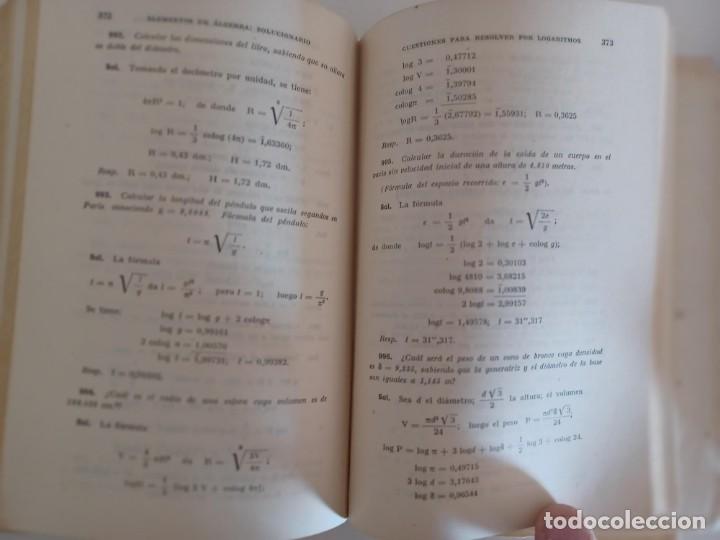 372 ELEMENTOS DE ÁLGEBRA: SOLUCIONARIO
992. Calcular las dimensiones del litro, sabiendo que su altura
es doble del diámetro.
Sol. Tomando el decímetro por unidad, se tiene:
4πR³ = 1; de donde R = ∛(1/4π);
log R = 1/3 colog (4π) = 1̄,63360;
R = 0,43 dm. H = 1,72 dm.
Resp. R = 0,43 dm.; H = 1,72 dm.
993. Calcular la longitud del péndulo que oscila segundos en
París conociendo g = 9,8088. Fórmula del péndulo:
t = π √(l/g).
Sol. La fórmula
t = π √(l/g) da l = gt²/π²; pero t = 1; luego l = g/π².
Se tiene: log l = log g + 2 colog π
log g = 0,99161
2 colog π = 1̄,00570
log l = 1̄,99731; l = 0,99382.
Resp.
994. ¿Cuál es el radio de una esfera cuyo volumen es de
Sol. La fórmula
V = 4/3 πR³ da R = ∛(3V/4π);
373 CUESTIONES PARA RESOLVER POR LOGARITMOS
log 3 = 0,47712
log V = 1̄,30001
colog 4 = 1̄,39794
colog π = 1̄,50285
log R = 1/3 (2̄,67792) = 1̄,55931; R = 0,3625
Resp. R = 0,3625.
995. Calcular la duración de la caída de un cuerpo en el
vacío sin velocidad inicial de una altura de 4.810 metros.
(Fórmula del espacio recorrido: e = 1/2 gt²).
Sol. La fórmula
e = 1/2 gt² da t = √(2e/g);
de donde log t = 1/2 (log 2 + log e + colog g);
log 2 = 0,30103
log 4810 = 3,68215
colog 9,8088 = 1̄,00839
2 log t = 2,99157
log t = 1,49578; t = 31'',317.
Resp. t = 31'',317.
996. ¿Cuál será el peso de un cono de bronce cuya densidad
es δ = 9,235, sabiendo que la generatriz y el diámetro de la base
son iguales a 1,145 m?
Sol. Sea d el diámetro; d√3/2 la altura; el volumen
V = πd³√3/24; luego el peso P = πd³δ√3/24;
log P = log π + 3 log d + log δ + 1/2 log 3 + colog 24.
log π = 0,49715
3 log d = 3,17643
log δ = 0,96544
todocoleccion